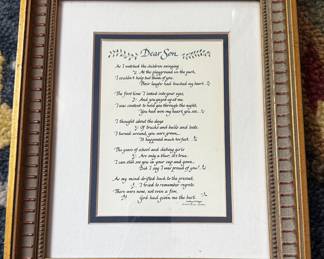 Dear Son,
As I watched the children swinging
At the playground in the park,
I couldn't help but think of you.
Their laughter had touched my heart.
The first time I looked into your eyes,
And you gazed up at me,
I was content to hold you through the night,
You had won my heart, you see.
I thought about the days
Of trucks and balls and bats.
I turned around, you were grown,
It happened much too fast.
The years of school and dating girls
Are only a blur, it's true.
I can still see you in your cap and gown,
But I say I was proud of you!
As my mind drifted back to the present,
I tried to remember regrets.
There were none, not even a few,
God had given me the best.